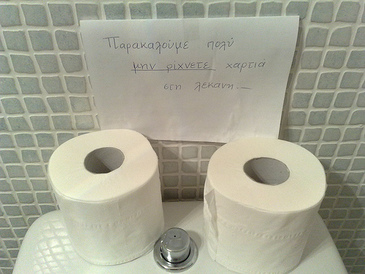 Παρακαλούμε πολύ
μην ρίχνετε χαρτιά
στη λεκάνη...